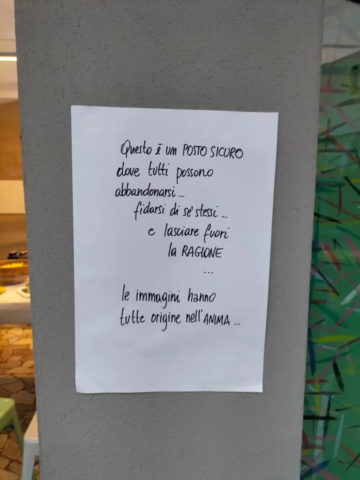 Questo è un POSTO SICURO
dove tutti possono
abbandonarsi ...
fidarsi di sé stessi ...
e lasciare fuori
la RAGIONE
...
le immagini hanno
tutte origine nell'ANIMA ...